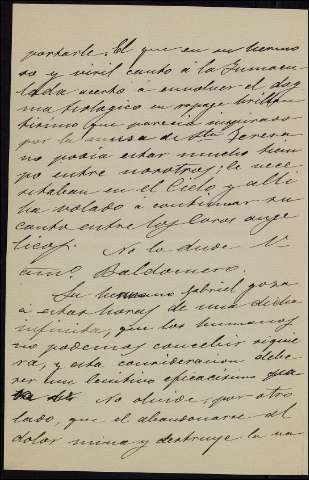 portarle; El que en un hermo
so y viril canto á la Inmacu
lada acertó á envolver el dog
ma teologico en ropaje brillan
tisimo que parecia inspirado
por la musa de Sta Teresa
no podia estar mucho tiem
po entre nosotros; le nece
sitaban en el Cielo y alli
ha volado á continuar su
canto entre los Coros ange
licos. No lo dude V.
amo, Baldomero.
Su hermano Gabriel goza
á estas horas de una dicha
infinita, que los humanos
no podemos concebir siquie
ra; y esta consideracion debe
ser un lenitivo eficacisimo
No olvide, por otro
lado, que el abandonarse al
dolor mina y destruye la na